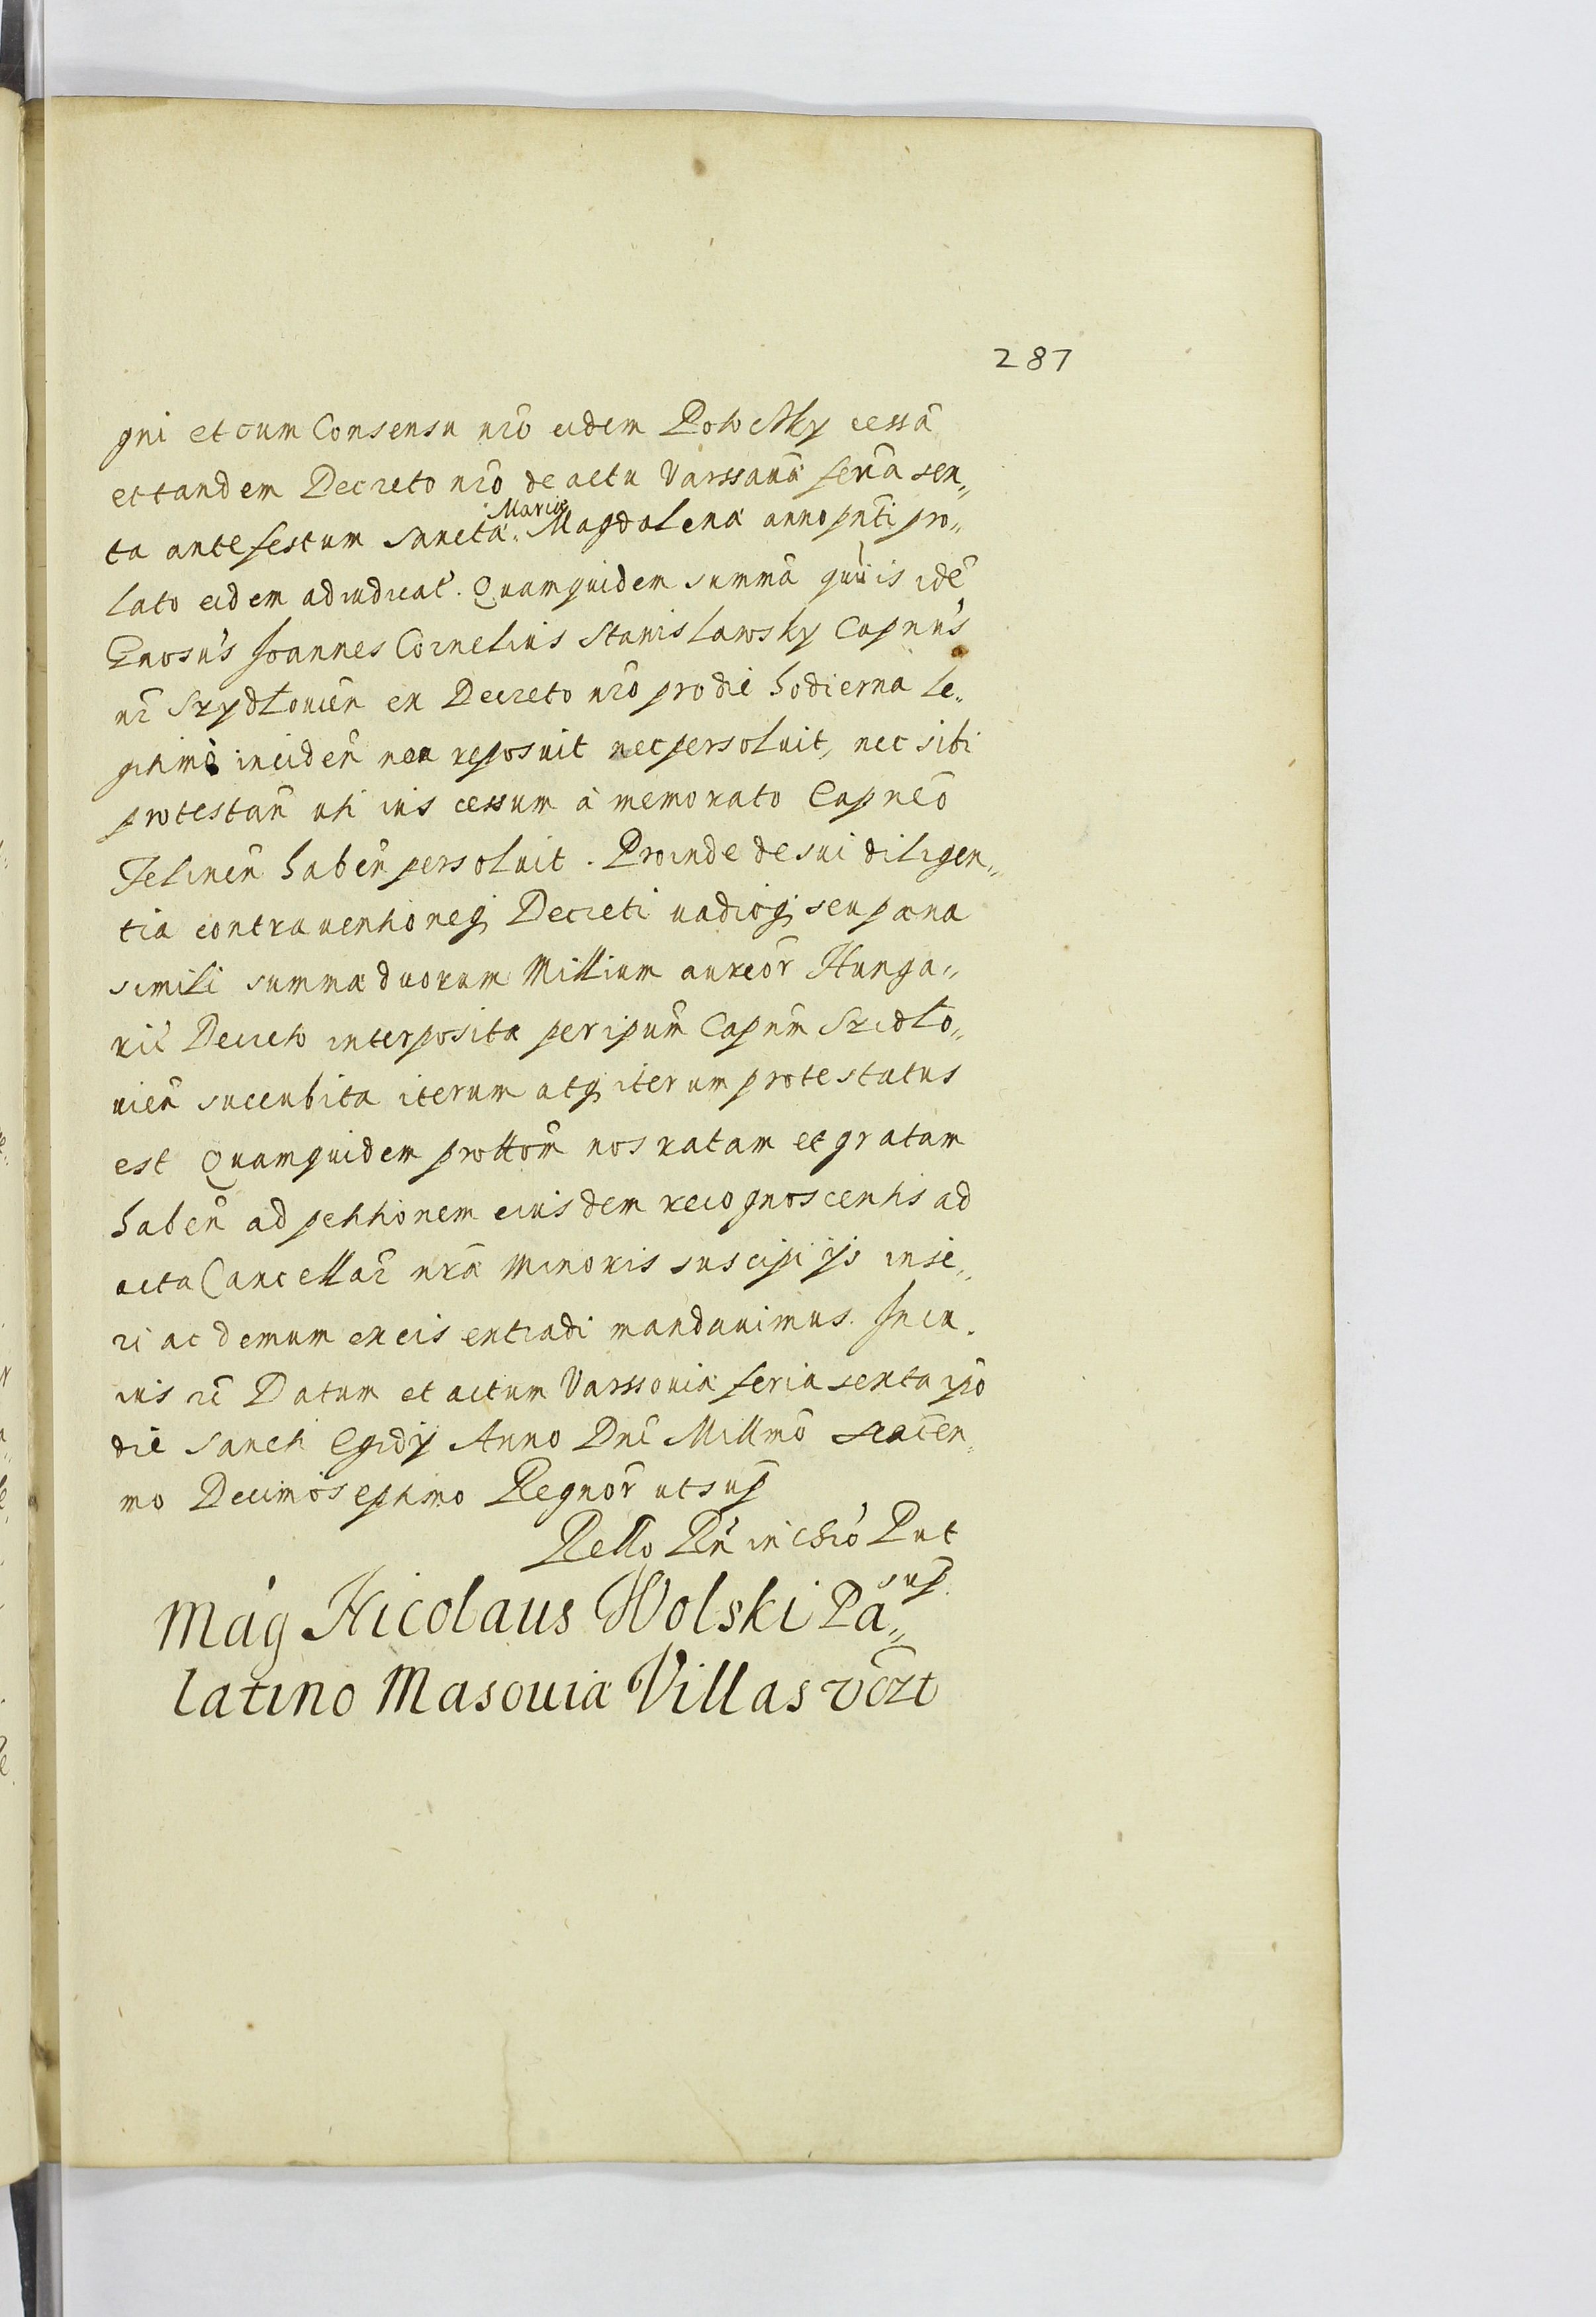 287
gni et cum Consensu nrō eidem Potocsky cessā
et tandem Decreto nrō de actu Varssauiæ feria sex„
ta ante festum Sanctæ Mariæ Magdalenæ anno pn̄ti pro„
lato eidem adiudicat. Quamquidem summā quia is idē
Gnosūs Joannes Cornelius Stanislawsky Capnūs
nr̄ Szydłouien̄ ex Decreto nrō pro die hodierna le„
gitime inciden̄ nec reposuit nec persoluit, nec sibi
protestan̄ uti ius cessum à memorato Capneō
Felinen̄ haben̄ persoluit. Proinde de sui diligen„
tia contrauentioneq; Decreti uadioq; seu pæna
simili summæ duorum Millium aureor̄ Hunga„
ric̄ Decreto interposita per ipsum̄ Capnm̄ Szidło„
uien̄ succubita iterum atq; iterum protestatus
est Quamquidem prottom̄ nos ratam et gratam
haben̄ ad petitionem eiusdem recognoscentis ad
acta Cancellar̄ nrǣ Minoris suscipi ijs inse„
ri ac demum ex eis extradi mandauimus. In cu„
ius rē Datum et actum Varssouiæ feria sexta ipō
die Sancti Egidij Anno Dnī Millmō sexcen„
mo Decimōseptimo Regnor̄ ut sup̄
Rello Rn̄ in Chrō P ut
sup̄
Mag Nicolaus Wolski Pa„
latino Masouiæ Villas